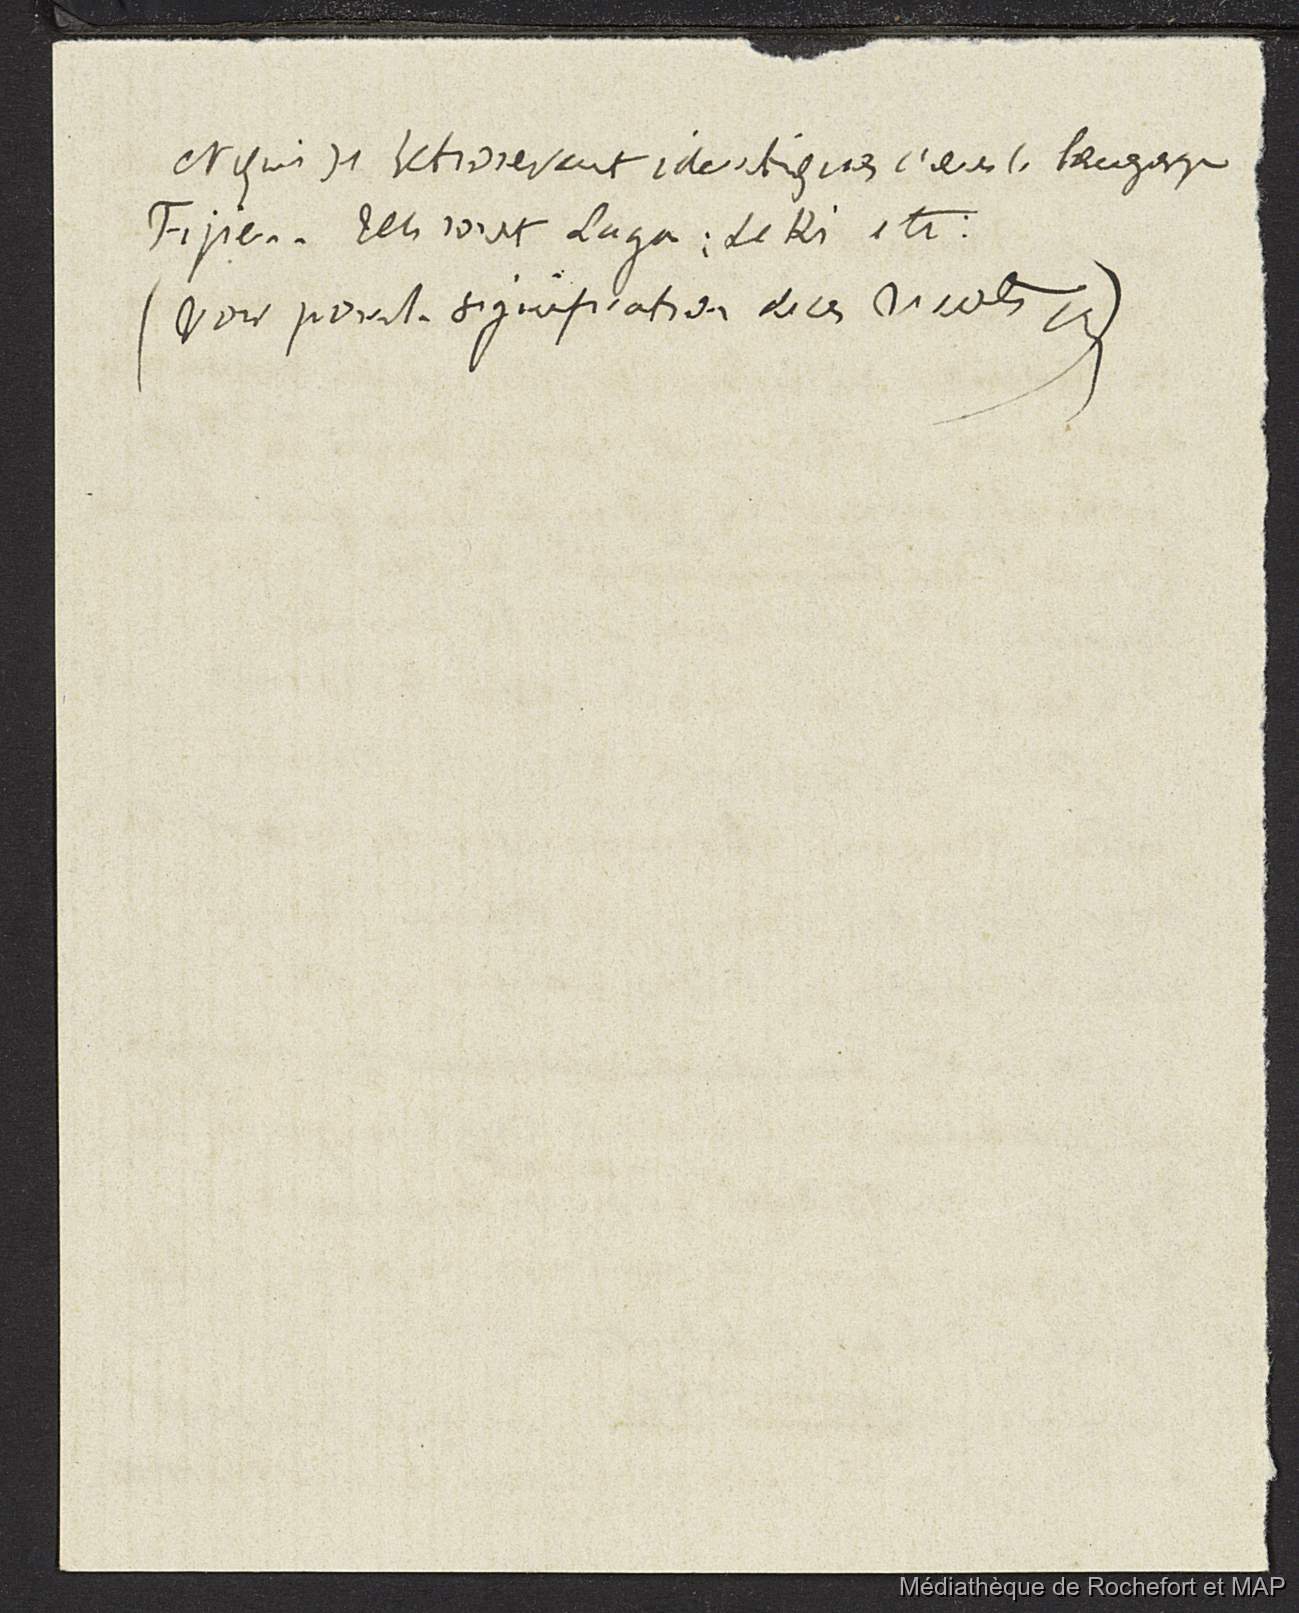 et qui se retrouvent identiques dans le langage
Fijien. Tels sont Laga ; Leki etc :
(voir pour la signification de ces
Médiathèque de Rochefort et MAP